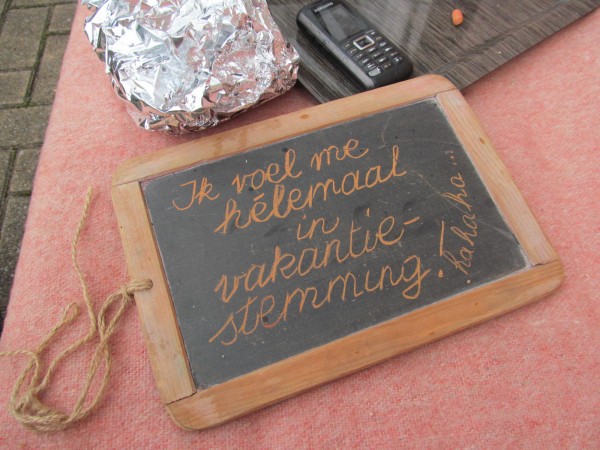 Ik voel me
hélemaal
in
vakantie-
stemming!
hahaha...